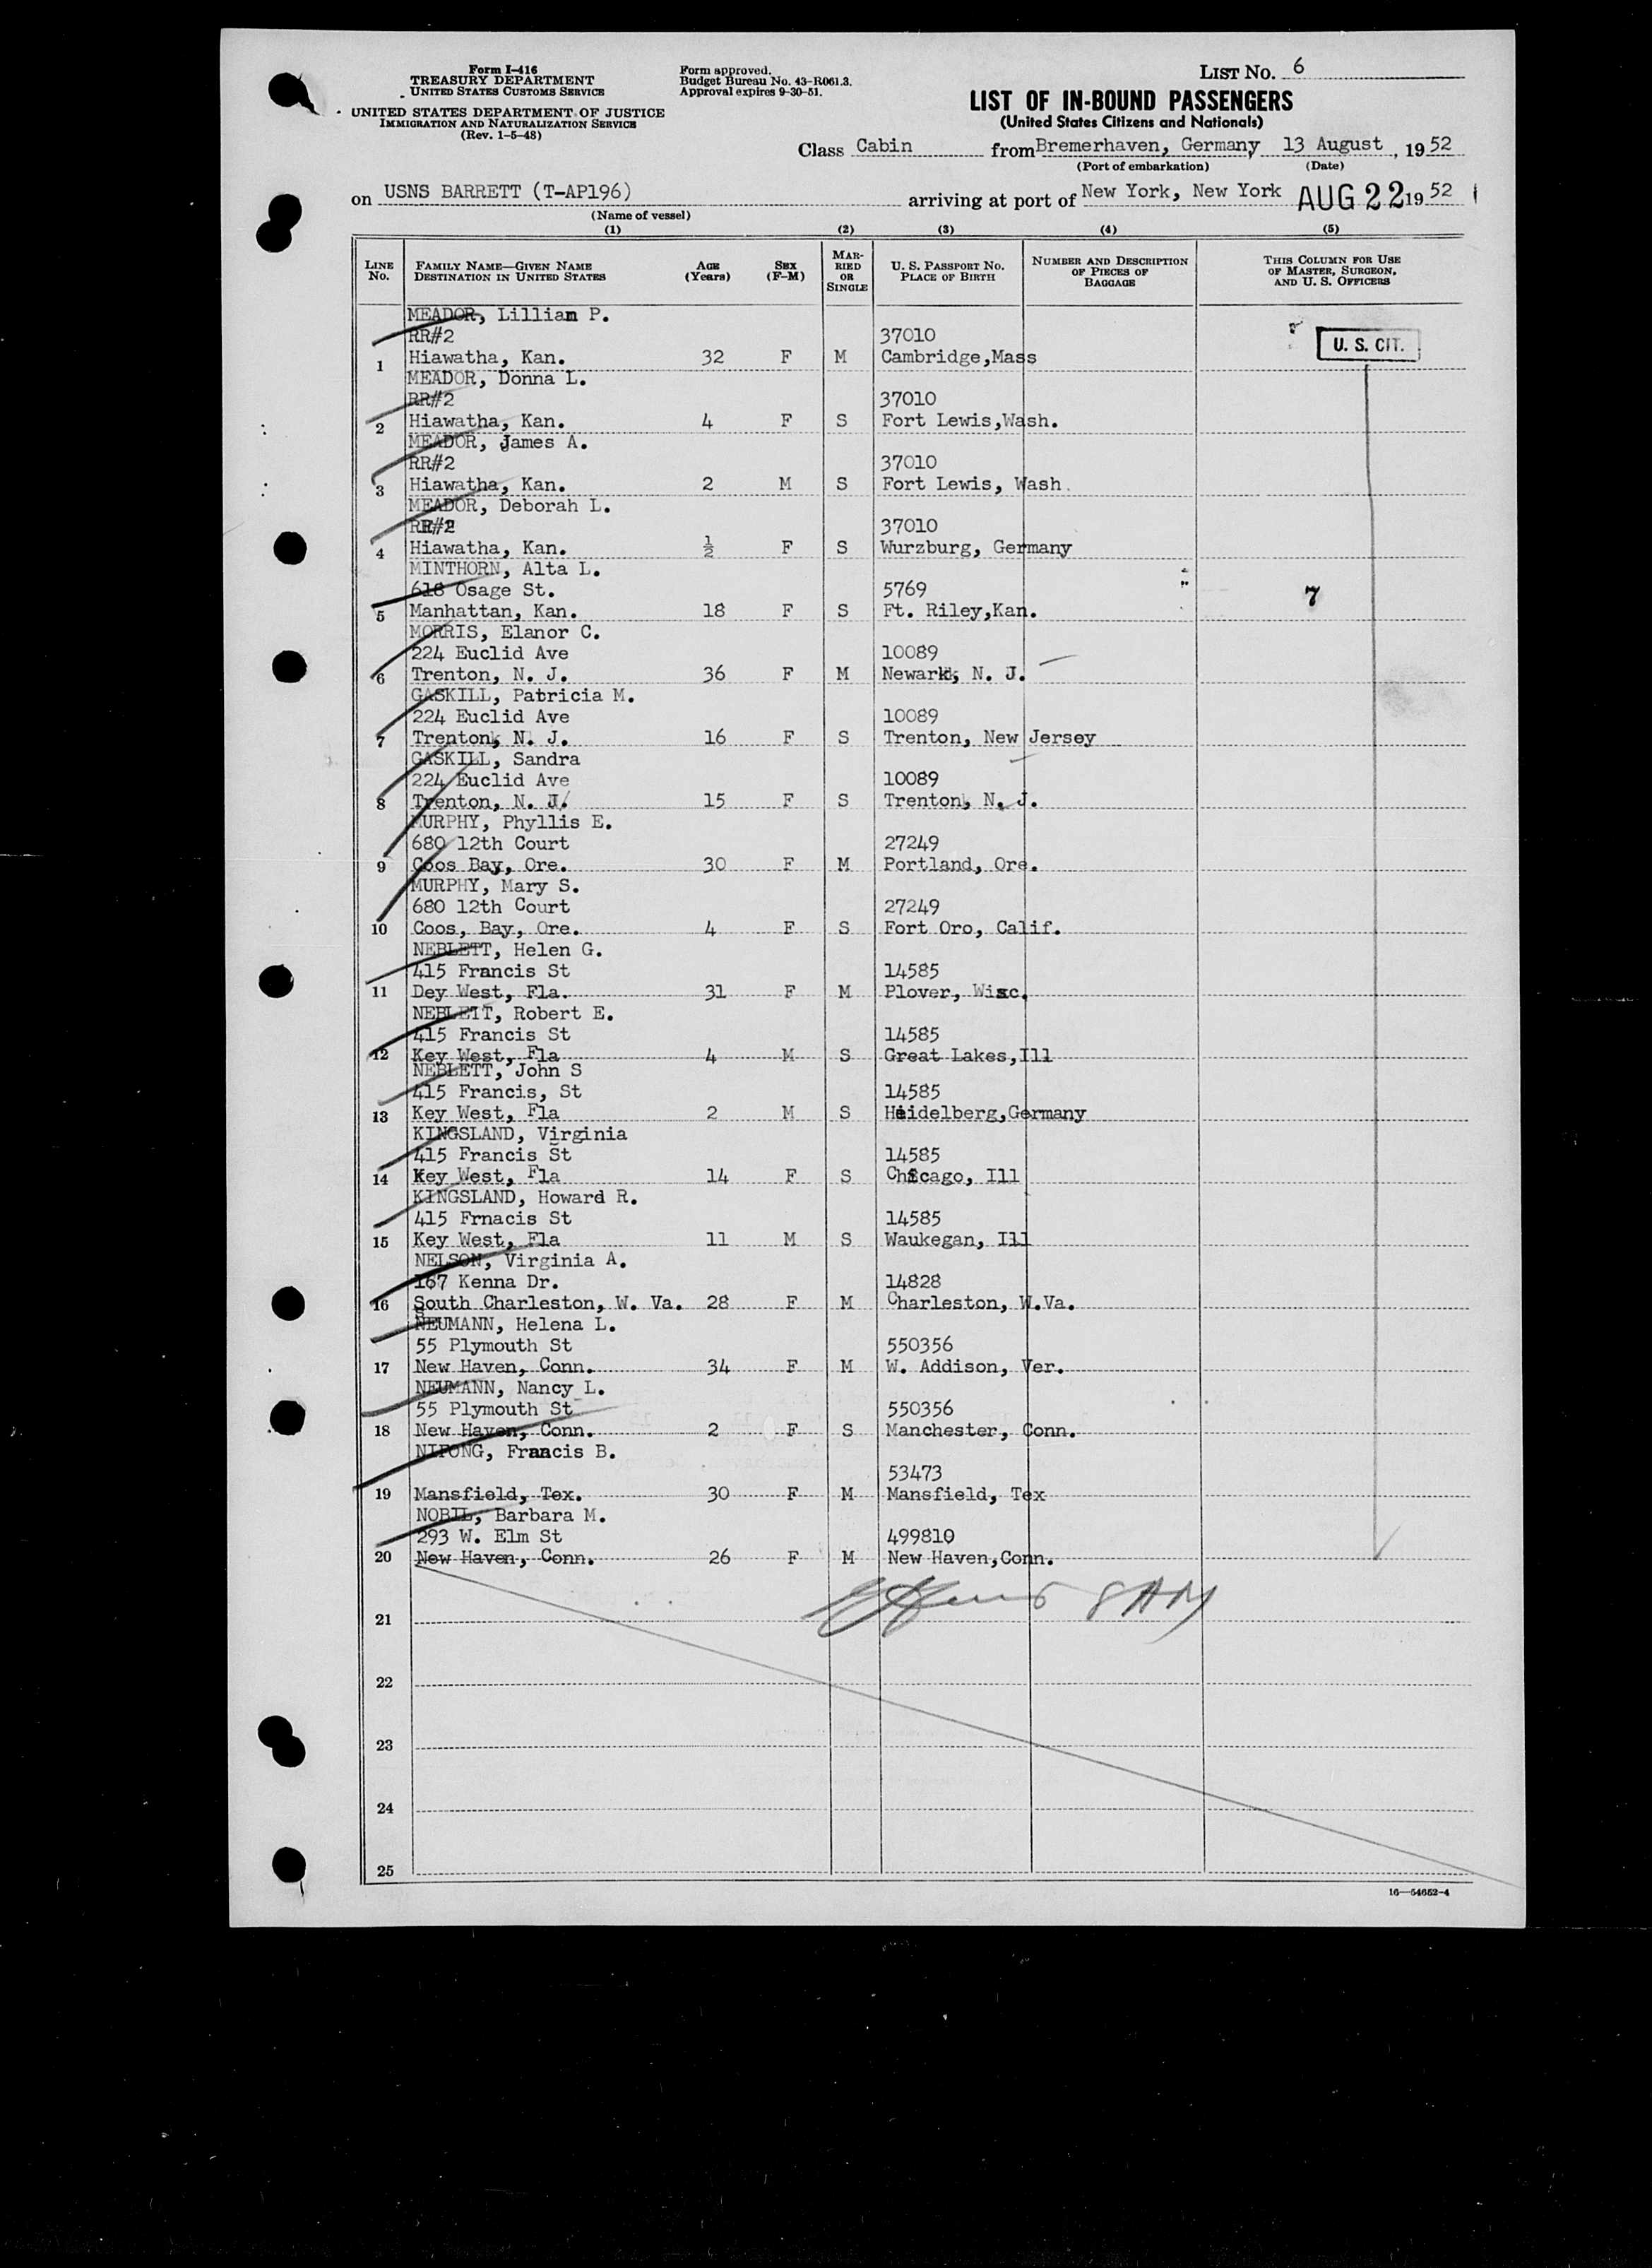 Form I-416
TREASURY DEPARTMENT
UNITED STATES CUSTOMS SERVICE
UNITED STATES DEPARTMENT OF JUSTICE
IMMIGRATION AND NATURALIZATION SERVICE
(Rev. 1-5-48)
Form approved.
Budget Bureau No. 43-R061.3.
Approval expires 9-30-51.
LIST NO. 6
LIST OF IN-BOUND PASSENGERS
(United States Citizens and Nationals)
Class Cabin from Bremerhaven, Germany 13 August, 1952
(Port of embarkation) (Date)
on USNS BARRETT (T-AP196) arriving at port of New York, New York AUG 22 1952
(Name of vessel)
(1) (2) (3) (4) (5)
LINE NO. FAMILY NAME—GIVEN NAME DESTINATION IN UNITED STATES AGE (Years) SEX (F-M) MARRIED OR SINGLE U. S. PASSPORT NO. PLACE OF BIRTH NUMBER AND DESCRIPTION OF PIECES OF BAGGAGE THIS COLUMN FOR USE OF MASTER, SURGEON, AND U. S. OFFICERS
MEADOR, Lillian P.
RR#2 37010 U. S. CIT.
1 Hiawatha, Kan. 32 F M Cambridge,Mass
MEADOR, Donna L.
RR#2 37010
2 Hiawatha, Kan. 4 F S Fort Lewis,Wash.
MEADOR, James A.
RR#2 37010
3 Hiawatha, Kan. 2 M S Fort Lewis, Wash.
MEADOR, Deborah L.
RR#2 37010
4 Hiawatha, Kan. ½ F S Wurzburg, Germany
MINTHORN, Alta L.
618 Osage St. 5769 7
5 Manhattan, Kan. 18 F S Ft. Riley,Kan.
MORRIS, Elanor C.
224 Euclid Ave 10089
6 Trenton, N. J. 36 F M Newark, N. J.
GASKILL, Patricia M.
224 Euclid Ave 10089
7 Trenton, N. J. 16 F S Trenton, New Jersey
GASKILL, Sandra
224 Euclid Ave 10089
8 Trenton, N. J. 15 F S Trenton, N. J.
MURPHY, Phyllis E.
680 12th Court 27249
9 Coos Bay, Ore. 30 F M Portland, Ore.
MURPHY, Mary S.
680 12th Court 27249
10 Coos, Bay, Ore. 4 F S Fort Oro, Calif.
NEBLETT, Helen G.
415 Francis St 14585
11 Dey West, Fla. 31 F M Plover, Wisc.
NEBLETT, Robert E.
415 Francis St 14585
12 Key West, Fla 4 M S Great Lakes,Ill
NEBLETT, John S
415 Francis, St 14585
13 Key West, Fla 2 M S Heidelberg,Germany
KINGSLAND, Virginia
415 Francis St 14585
14 Key West, Fla 14 F S Chicago, Ill
KINGSLAND, Howard R.
415 Frnacis St 14585
15 Key West, Fla 11 M S Waukegan, Ill
NELSON, Virginia A.
167 Kenna Dr. 14828
16 South Charleston, W. Va. 28 F M Charleston, W.Va.
NEUMANN, Helena L.
55 Plymouth St 550356
17 New Haven, Conn. 34 F M W. Addison, Ver.
NEUMANN, Nancy L.
55 Plymouth St 550356
18 New Haven, Conn. 2 F S Manchester, Conn.
NIFONG, Francis B.
53473
19 Mansfield, Tex. 30 F M Mansfield, Tex
NOBIL, Barbara M.
293 W. Elm St 499810
20 New Haven, Conn. 26 F M New Haven,Conn.
21
22
23
24
25
16—54652-4